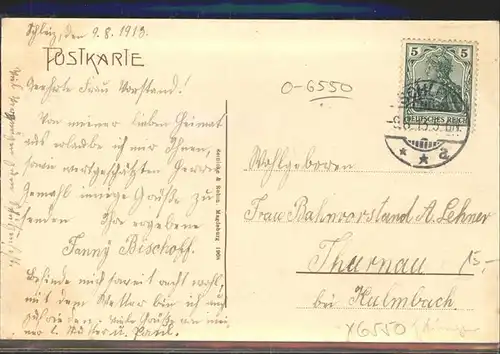 Schleiz, den 9.8.1913.
POSTKARTE
Geehrte Frau Vorstand!
Von meiner lieben Heimat
aus erlaube ich mir Ihnen,
sowie wertgeschätzten Herrn
Gemahl innige Grüße zu
senden. Ihre ergebene
Fanny Bischoff.
Befinde mich soweit recht wohl,
mit dem Wetter bin ich auch
zufrieden. Viele Grüße an
l. Mutter u. Paul.
Magdeburg 1908
O-6550
5 5
DEUTSCHES REICH
* * a
Wohlgeboren
Frau Bahnvorstand A. Lehner
Thurnau
bei Kulmbach
15,-
X6550